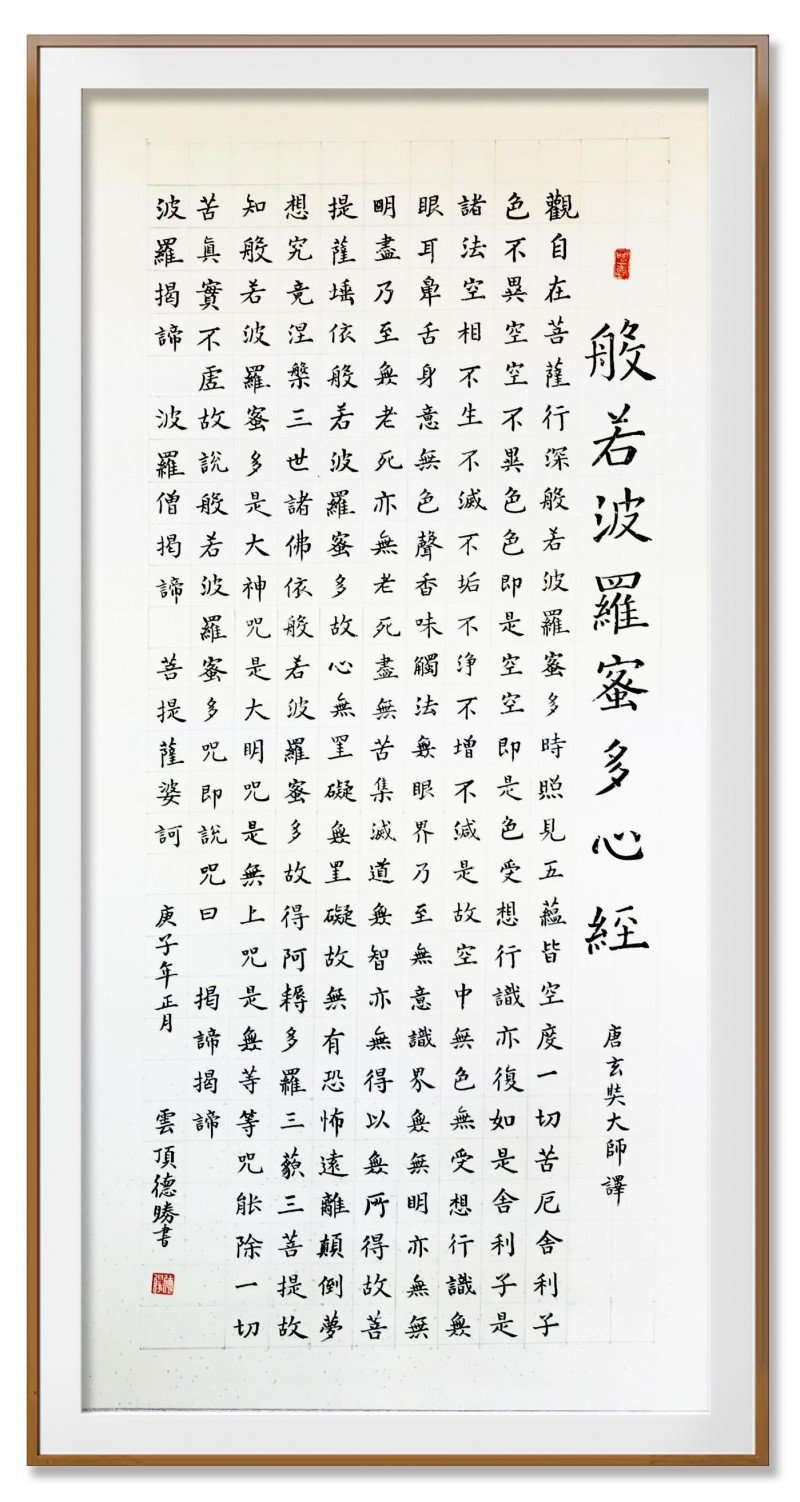 般若波羅蜜多心經 唐玄奘大師譯
觀自在菩薩行深般若波羅蜜多時照見五蘊皆空度一切苦厄舍利子
色不異空空不異色色即是空空即是色受想行識亦復如是舍利子是
諸法空相不生不滅不垢不浄不增不減是故空中無色無受想行識無
眼耳鼻舌身意無色聲香味觸法無眼界乃至無意識界無無明亦無無
明盡乃至無老死亦無老死盡無苦集滅道無智亦無得以無所得故菩
提薩埵依般若波羅蜜多故心無罣礙無罣礙故無有恐怖遠離顛倒夢
想究竟涅槃三世諸佛依般若波羅蜜多故得阿耨多羅三藐三菩提故
知般若波羅蜜多是大神咒是大明咒是無上咒是無等等咒能除一切
苦真實不虛故說般若波羅蜜多咒即說咒曰 揭諦揭諦
波羅揭諦 波羅僧揭諦 菩提薩婆訶 庚子年正月 雲頂德勝書